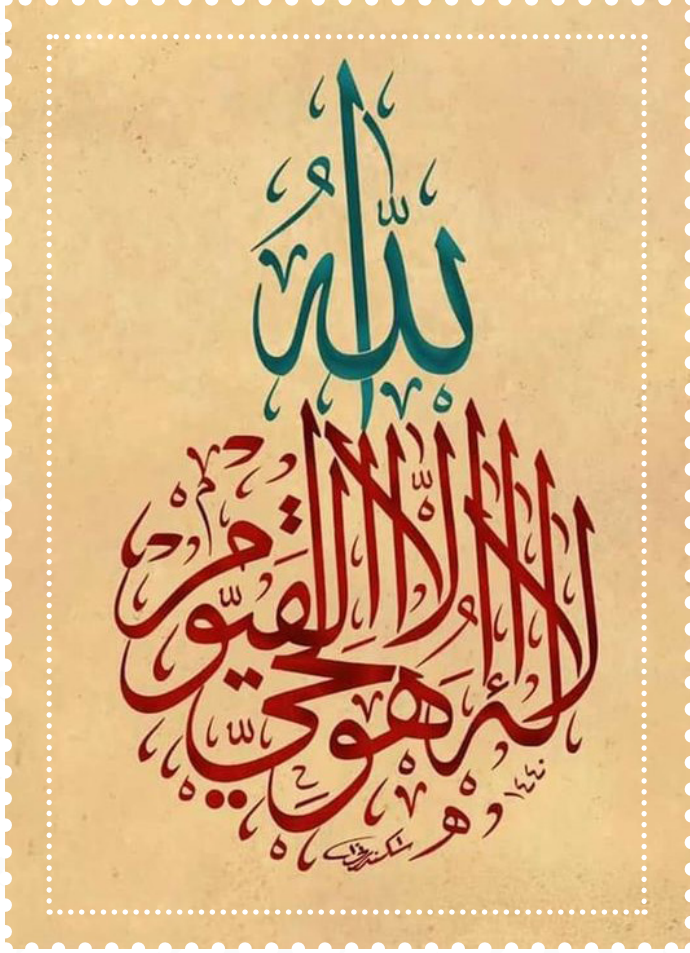 اللهُ
لا إله إلا هو الحي القيوم
١٤٤٠ هـ